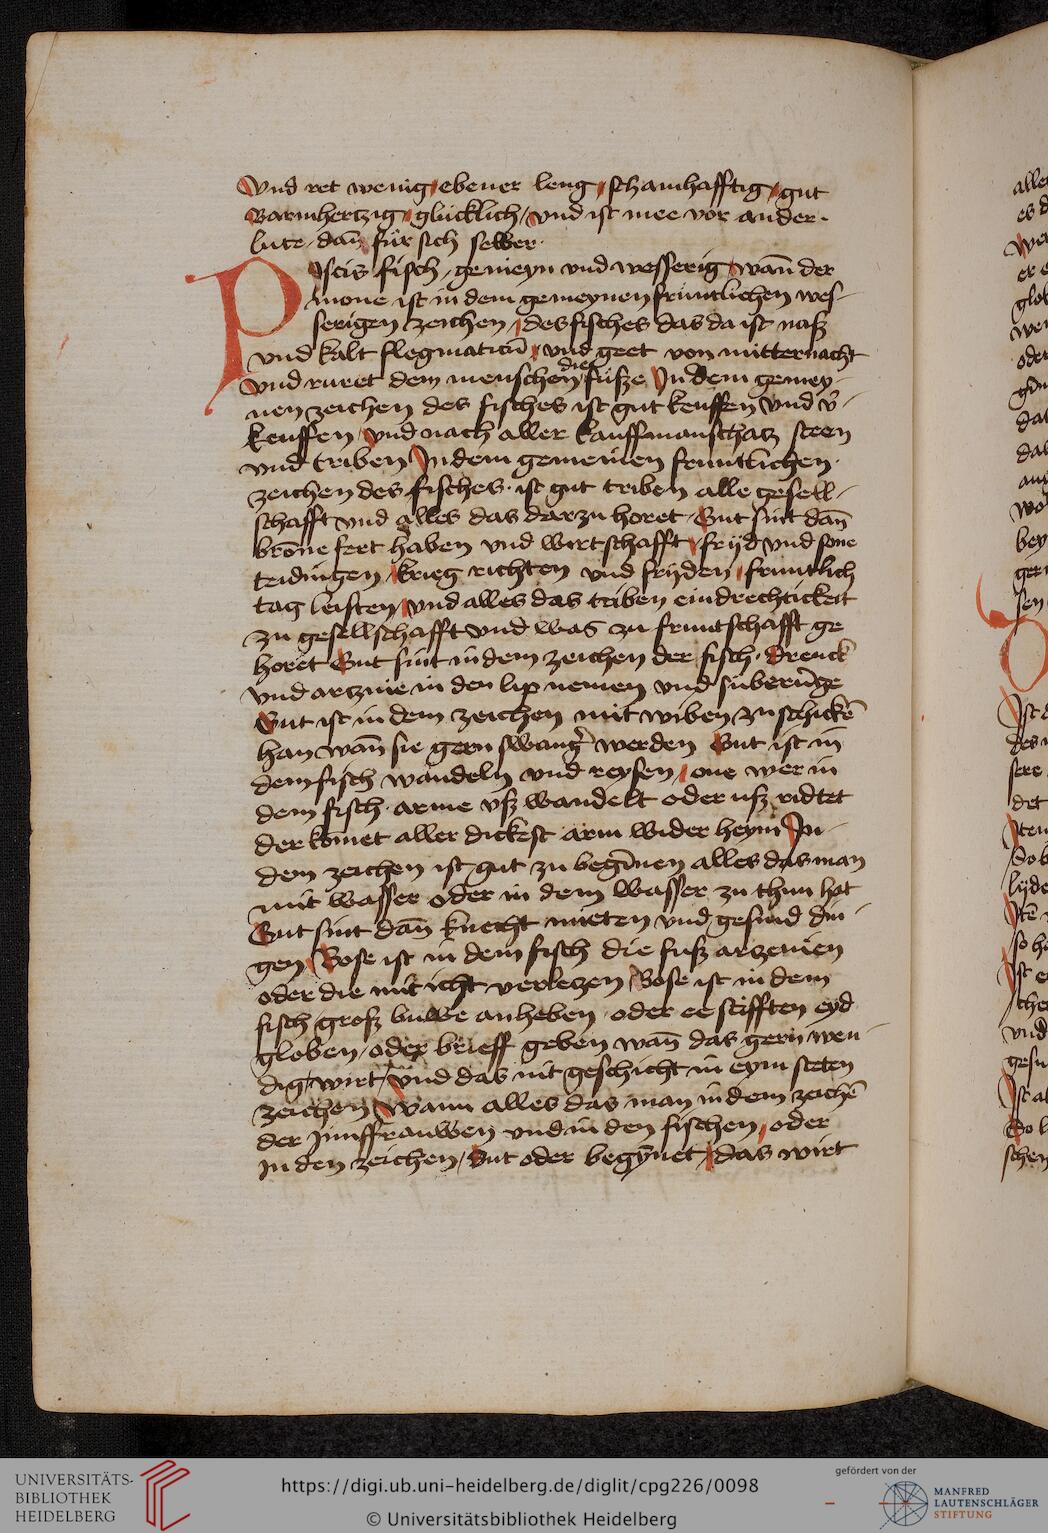 Vnd ret wenig ebener leng schamhafftig gut
Barmhertzig glücklich / vnd ist mee vor ander
lute dañ für sich selber
Piscis fisch / gemeyn vnd wesserig wañ der
mone ist in dem gemeynen fruntlichen wes-
serigen zeichen / des fisches das da ist nasz
vnd kalt flegmaticũ vnd geet von mitternacht
vnd ruret dem menschen die füsze In dem gemey-
nen zeichen des fisches ist gut keuffen vnd v̾-
keuffen vnd nach aller kauffmanschatz steen
vnd triben In dem gemeinen fruntlichen
zeichen des fisches ist gut triben alle gesell-
schafft vnd alles das darzu horet Gut sint dañ
bronefert haben vnd wirtschafft fryd vnd sone
teidingen krieg richten vnd fryden fruntlich
tag leisten vnd alles das triben eindrechtickeit
zu gesellschafft vnd was zu fruntschafft ge
horet Gut sint in dem zeichen der fisch drenck
vnd artznie in den lip nemen vnd suberũge
Gut ist in dem zeichen mit wiben zu schickẽ
han wañ sie gern swang̾ werden Gut ist in
dem fisch wandeln vnd reysen / one wer in
dem fisch arme vsz wandelt oder usz ridtet
der komet aller dickest arm wider heym In
dem zeichen ist gut zu begĩnen alles das man
mit wasser oder in dem wasser zu thun hat
Gut sint dañ knecht mieten vnd gesind din-
gen Bose ist in dem fisch die fusz arzenien
oder die mit icht verletzen Bose ist in dem
fisch grosz buwe anheben oder ee stifften eyd
globen / oder brieff geben wañ das gern wen-
dig wirt / vnd das nit geschicht in eym steten
zeichen Wann alles das man in dem zeichẽ
der Junffrauwen vnd in den fischen / oder
In den zeichen / dut oder begỹnet / das wirt
UNIVERSITÄTS-
BIBLIOTHEK
HEIDELBERG
https://digi.ub.uni-heidelberg.de/diglit/cpg226/0098
© Universitätsbibliothek Heidelberg
gefördert von der
MANFRED
LAUTENSCHLÄGER
STIFTUNG